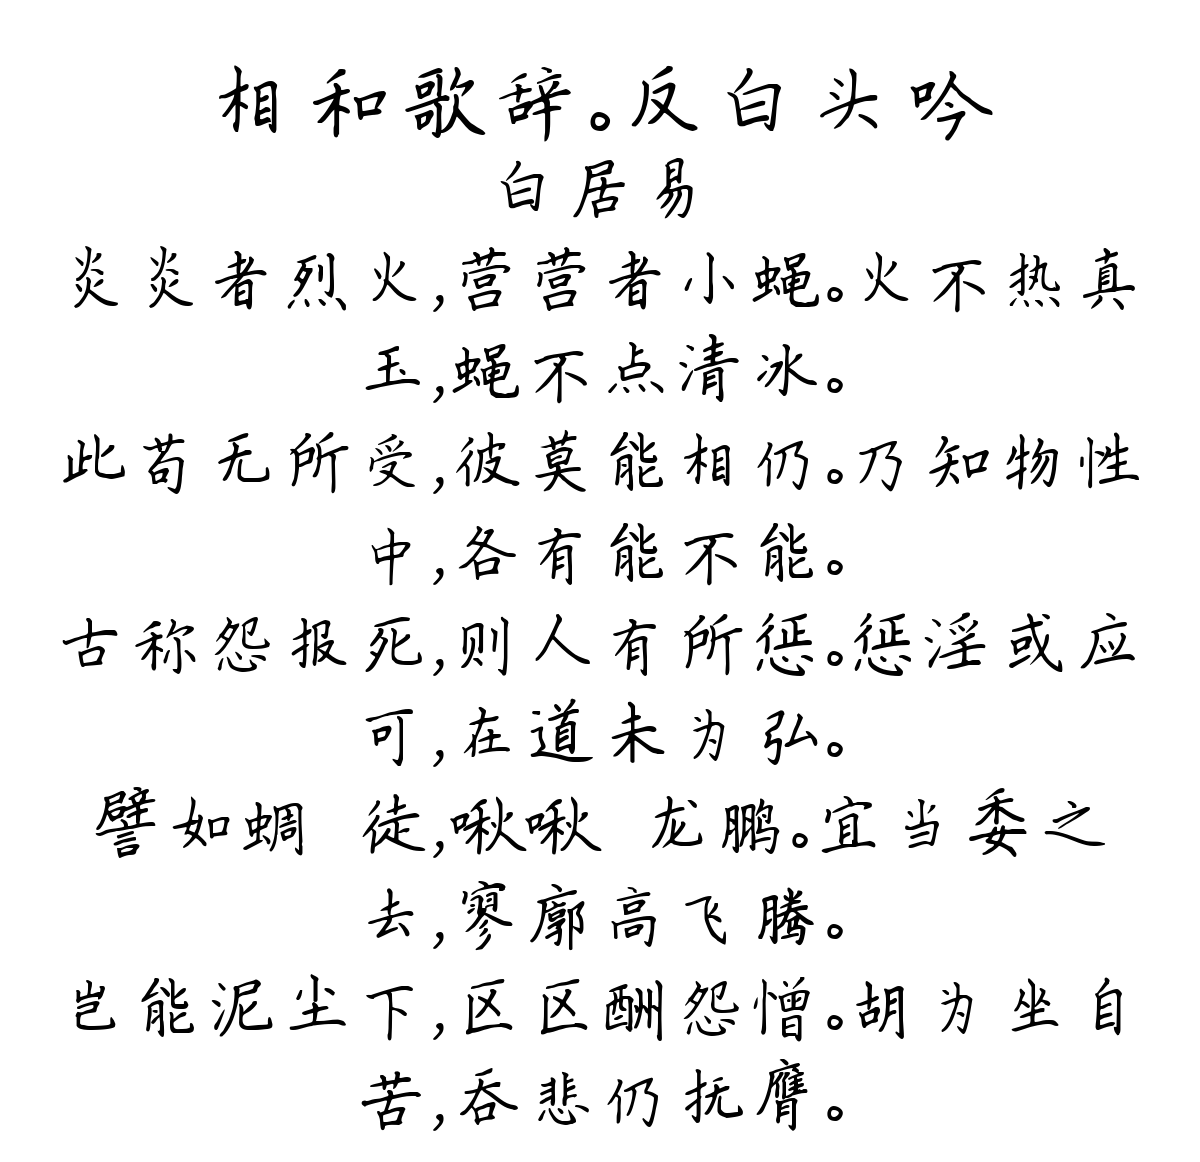 相和歌辞。反白头吟
白居易
炎炎者烈火,营营者小蝇。火不热真
玉,蝇不点清冰。
此苟无所受,彼莫能相仍。乃知物性
中,各有能不能。
古称怨报死,则人有所惩。惩淫或应
可,在道未为弘。
譬如蜩 徒,啾啾 龙鹏。宜当委之
去,寥廓高飞腾。
岂能泥尘下,区区酬怨憎。胡为坐自
苦,吞悲仍抚膺。